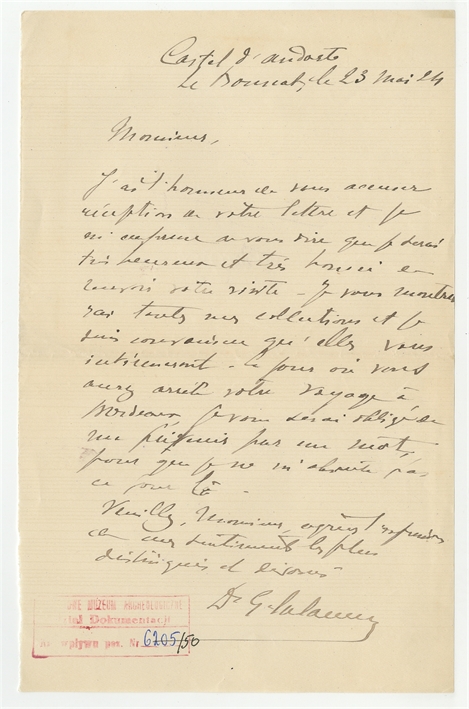 Castel d'andorte
Le Bouscat, le 23 mai 24
Monsieur,
J'ai l'honneur de vous accuser
réception de votre lettre et je
m'empresse de vous dire que je serai
très heureux et très honoré de
recevoir votre visite - Je vous montre
rai toutes mes collections et je
suis convaincu qu'elles vous
intéresseront - le jour où vous
aurez arrêté votre voyage à
Bordeaux je vous serai obligé de
me prévenir par un mot,
pour que je ne m'absente pas
ce jour là
Veuillez, Monsieur, agréer l'expression
de mes sentiments les plus
distingués et dévoués
Dr G. Lalanne
MUZEUM ARCHEOLOGICZNE
Dział Dokumentacji
wpływu poz. Nr. 6205/50